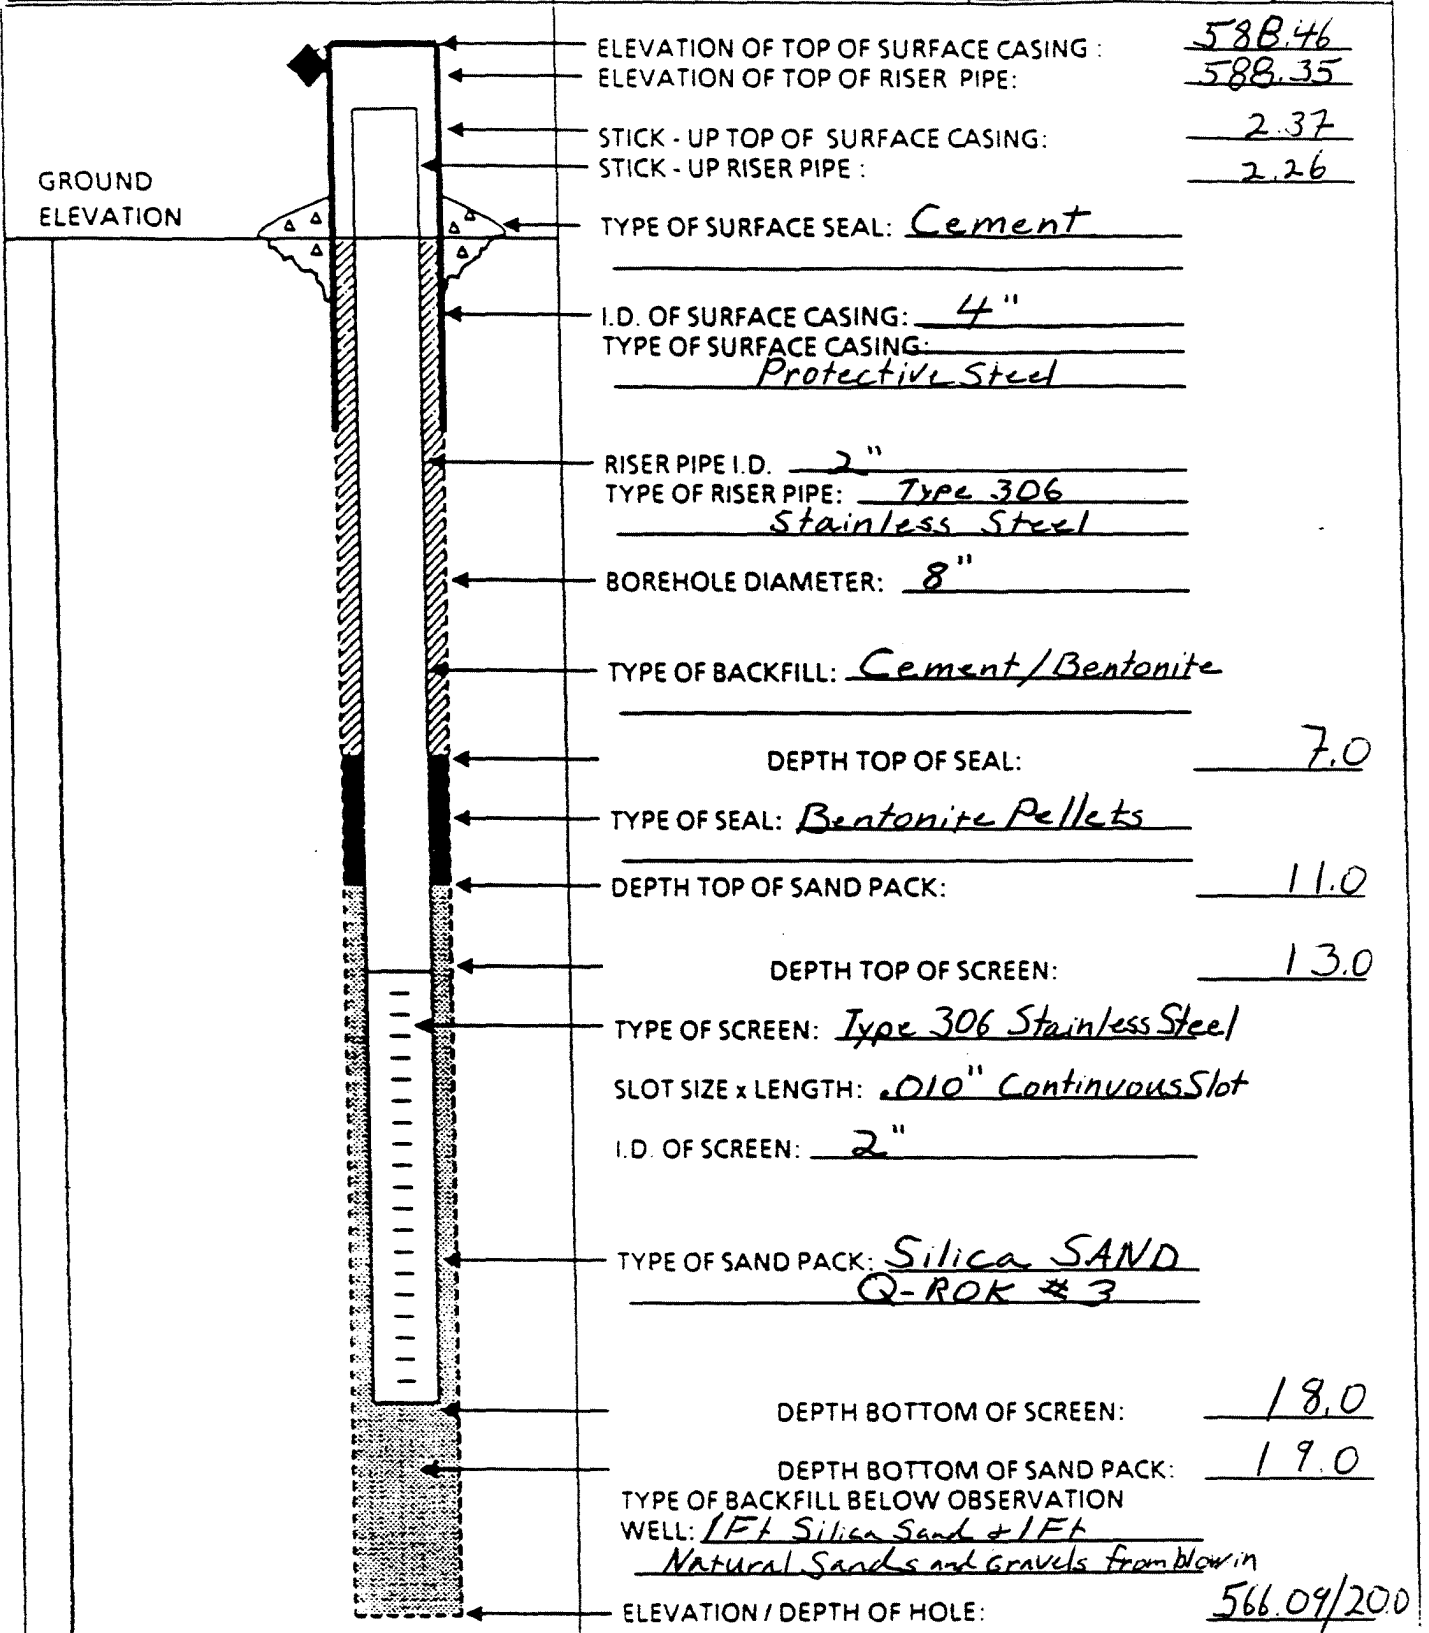 ELEVATION OF TOP OF SURFACE CASING : 588.46
ELEVATION OF TOP OF RISER PIPE: 588.35
STICK - UP TOP OF SURFACE CASING: 2.37
STICK - UP RISER PIPE : 2.26
GROUND
ELEVATION
TYPE OF SURFACE SEAL: Cement
I.D. OF SURFACE CASING: 4"
TYPE OF SURFACE CASING:
Protective Steel
RISER PIPE I.D. 2"
TYPE OF RISER PIPE: Type 306
Stainless Steel
BOREHOLE DIAMETER: 8"
TYPE OF BACKFILL: Cement/Bentonite
DEPTH TOP OF SEAL: 7.0
TYPE OF SEAL: Bentonite Pellets
DEPTH TOP OF SAND PACK: 11.0
DEPTH TOP OF SCREEN: 13.0
TYPE OF SCREEN: Type 306 Stainless Steel
SLOT SIZE x LENGTH: .010" Continuous Slot
I.D. OF SCREEN: 2"
TYPE OF SAND PACK: Silica SAND
Q-ROK #3
DEPTH BOTTOM OF SCREEN: 18.0
DEPTH BOTTOM OF SAND PACK: 19.0
TYPE OF BACKFILL BELOW OBSERVATION
WELL: 1Ft Silica Sand + 1Ft
Natural Sands and Gravels from blow in
ELEVATION / DEPTH OF HOLE: 566.09/20.0